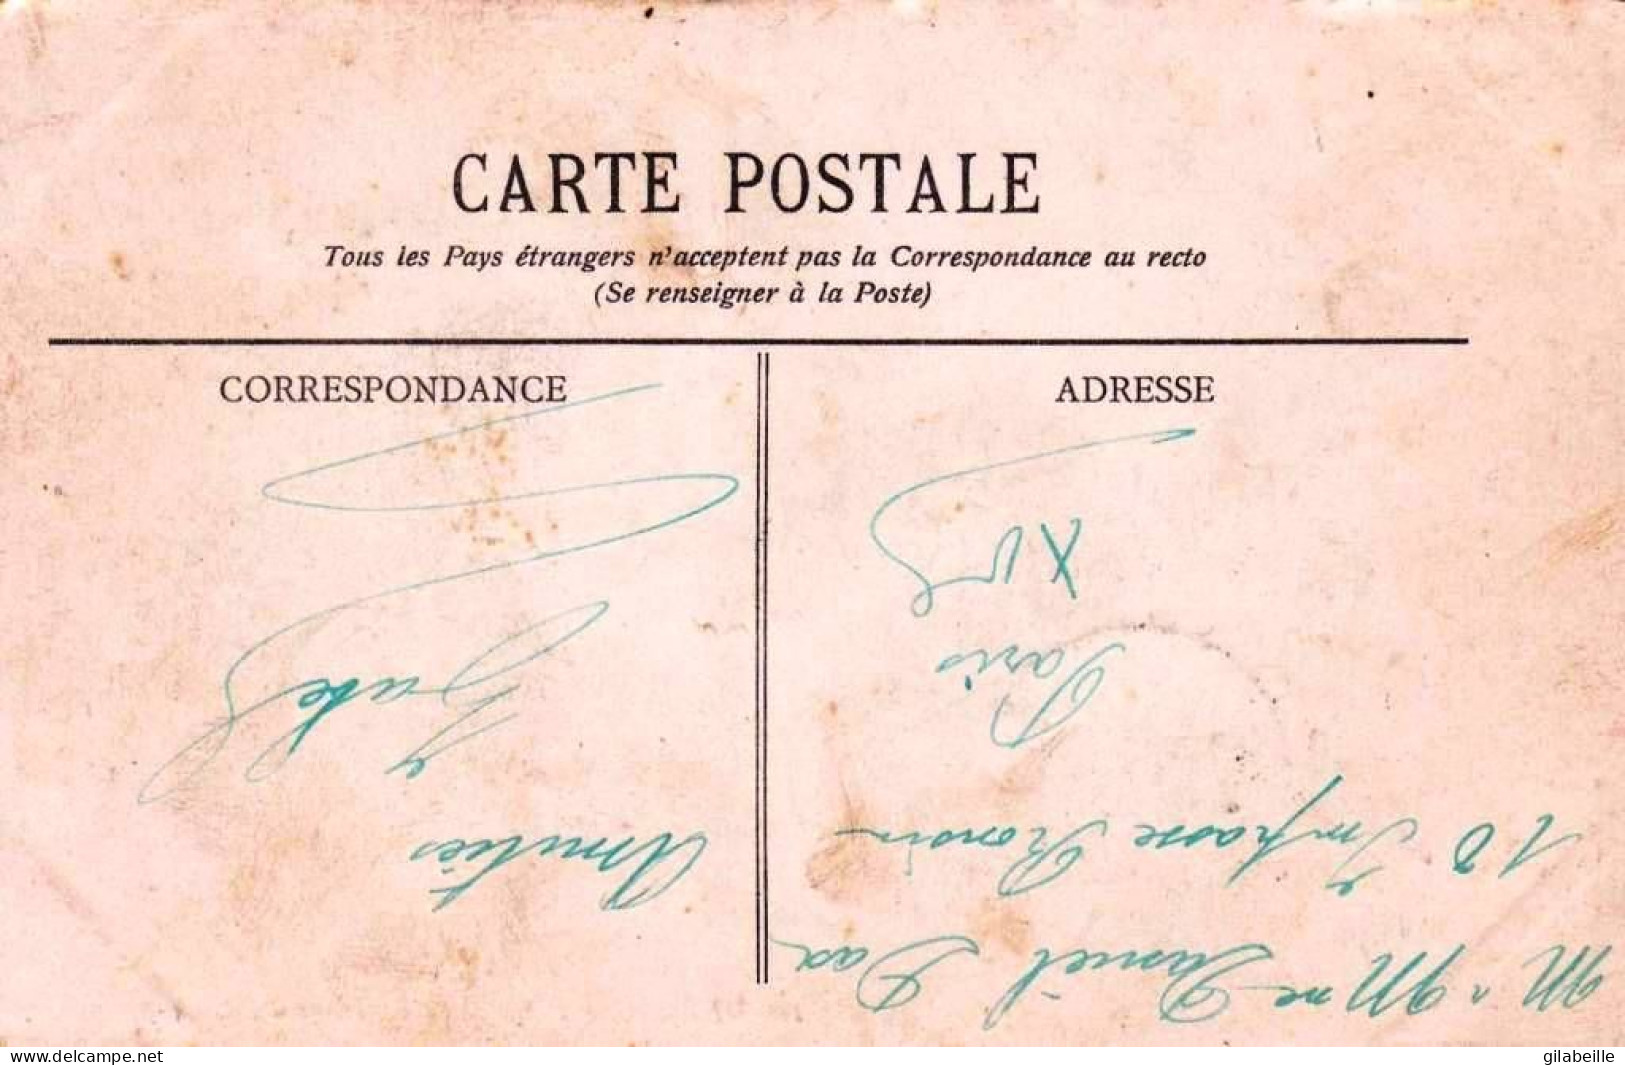 CARTE POSTALE
Tous les Pays étrangers n'acceptent pas la Correspondance au recto
(Se renseigner à la Poste)
CORRESPONDANCE
ADRESSE
Amitiés
M. Mme
10 Impasse Ronsin
Paris
XVe
www.delcampe.net
gilabeille